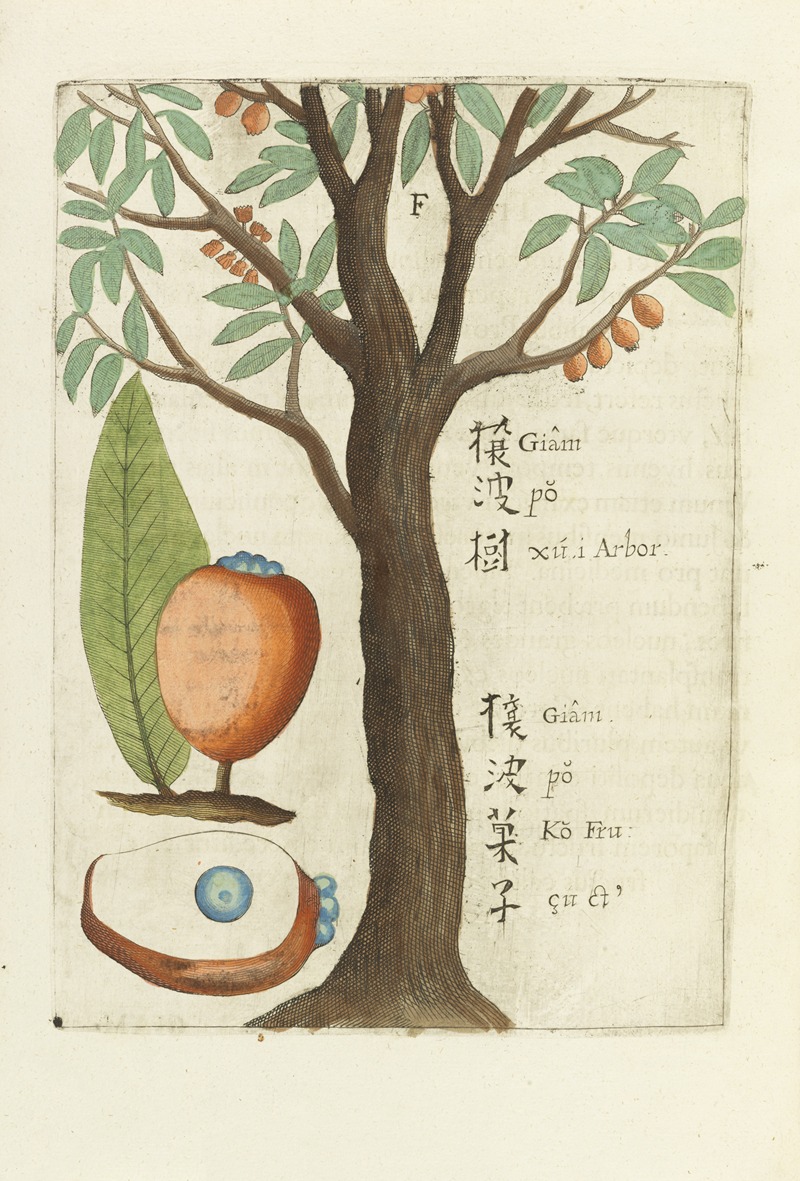 F
Giâm
波 pŏ
樹 xú.i Arbor.
Giâm.
波 pŏ
菓 Kŏ Fru:
子 çu ct'